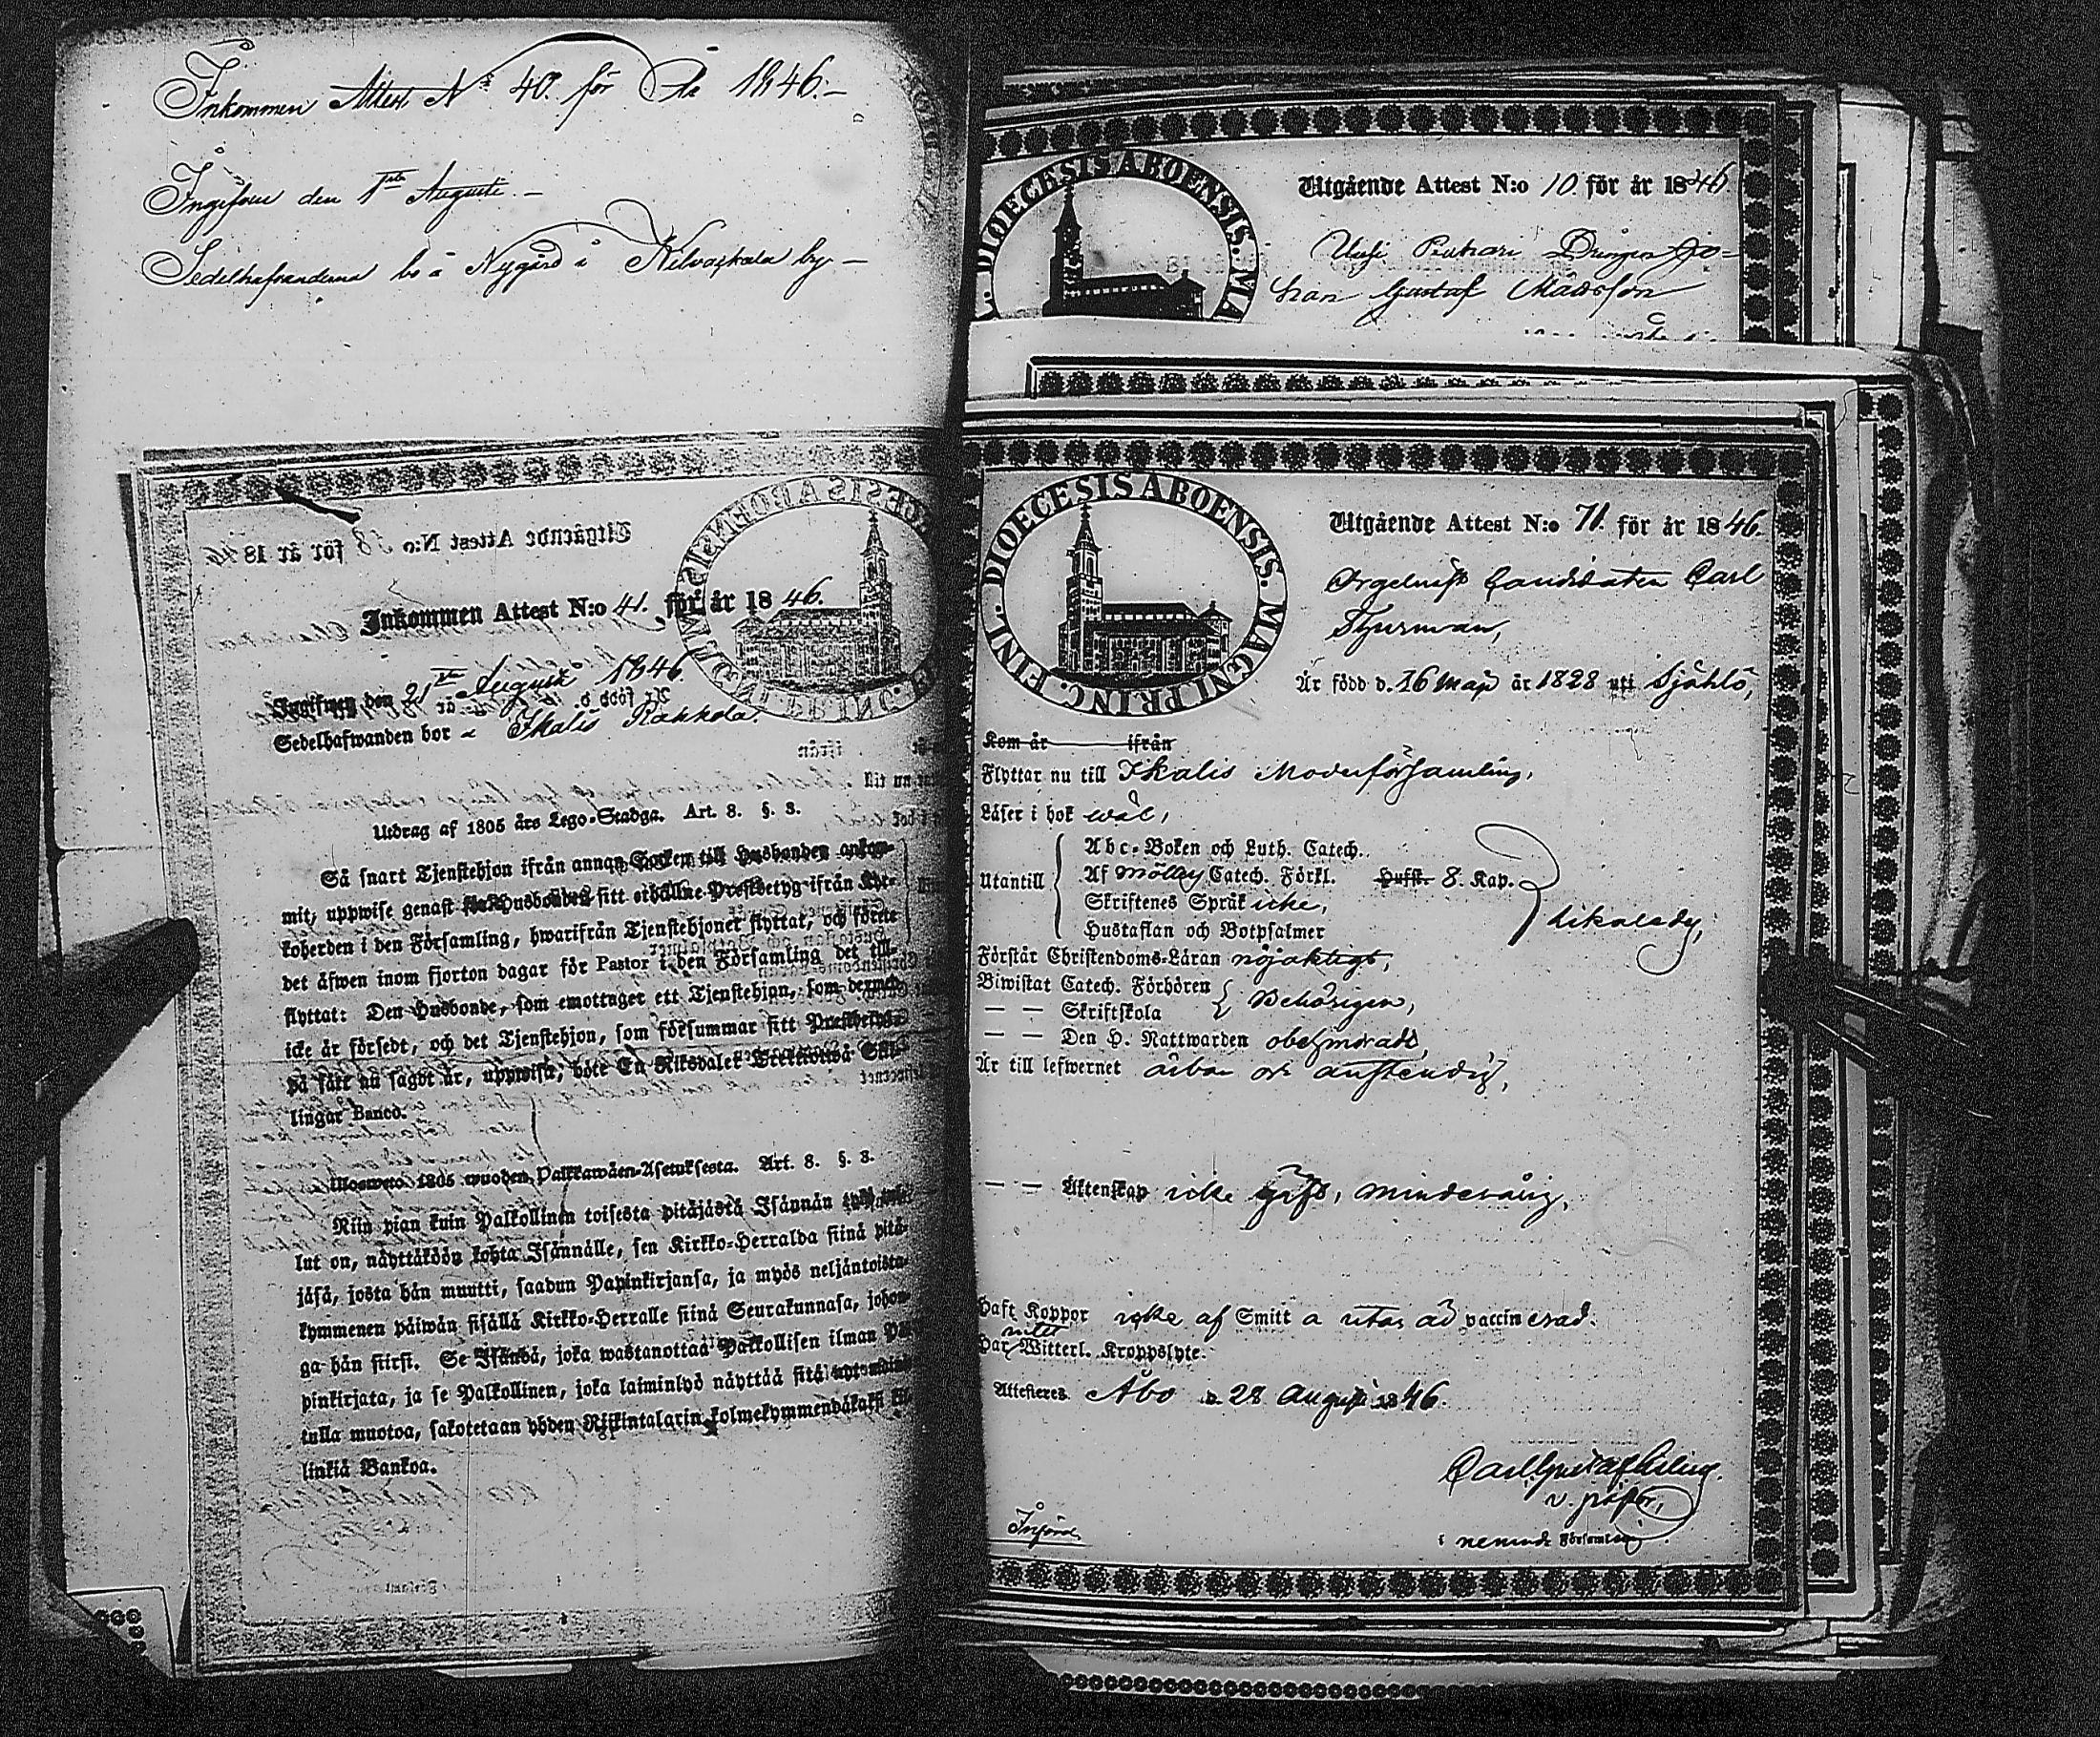 Inkommen Attest N:o 40. för År 1846.
Ingifven den 1sta Augusti.
Sedelhafvanderna bo å Nygård i Kilvaskala by
Utgående Attest N:o 58 för år 1846
Inkommen Attest N:o 41. för år 1846.
Ingifwen den 21 Augusti 1846
Sedelhafwanden bor å Ikalis Rahkola.
Utdrag af 1805 års Lego-Stadga. Art. 8. §. 3.
Så snart Tjenstehjon ifrån annan Socken till Husbonden ankom-
mit, uppwise genast för Husbonden sitt erhållne Prestbetyg ifrån Kyr-
koherden i den Församling, hwarifrån Tjenstehjonet flyttat, och förete
det äfwen inom fjorton dagar för Pastor i den Församling det till-
flyttat: Den Husbonde, som emottager ett Tjenstehjon, som dermed
icke är försedt, och det Tjenstehjon, som försummar sitt Prestbetyg
på sätt nu sagdt är, uppwisa, böte En Riksdaler Trettiotwå Skil-
lingar Banco.
Uloswето 1805 wuoden Palkkawäen-Asetuksesta. Art. 8. §. 3.
Niin pian kuin Palkollinen toisesta pitäjästä Isännän tygö tul-
lut on, näyttäköön kohta Isännälle, sen Kirkko-Herralda siinä pitä-
jäsä, josta hän muutti, saadun Papinkirjansa, ja myös neljäntoista-
kymmenen päiwän sisällä Kirkko-Herralle siinä Seurakunnasa, johon-
ga hän siirsi. Se Isändä, joka wastanottaa Palkollisen ilman Pa-
pinkirjata, ja se Palkollinen, joka laiminlyö näyttää sitä nytmaini-
tulla muotoa, sakotetaan yhden Riikintalarin kolmekymmendäkaksi kil-
linkiä Bankoa.
DIOECESIS ABOENSIS. MA
Utgående Attest N:o 10. för år 1846
Drängen Jo-
han Gustaf Mattsson
DIOECESIS ABOENSIS. MAGNI PRINC. FINL.
Utgående Attest N:o 71. för år 1846.
Orgelnist Candidaten Carl
Styrman,
Är född d. 16 maji år 1828 uti Sjählö,
Kom år ifrån
Flyttar nu till Ikalis Moderförsamling,
Läser i bok wäl,
Utantill
Abc-Boken och Luth. Catech.
Af möllers Catech. Förkl. Hufst. 8. Kap.
Skriftenes Språk icke,
Hustaflan och Botpsalmer
likaledes,
Förstår Christendoms-Läran nöjaktigt,
Biwistat Catech. Förhören
— — Skriftskola
Behörigen,
— — Den H. Nattwarden obehindrad
Är till lefwernet ärbar och anständig,
— — Äktenskap icke gift, minderårig,
Haft Koppor icke af Smitta utan är vaccinerad.
Har intet Witterl. Kroppslyte.
Attesteres Åbo d. 28 augusti 1846.
v. pastor,
i nemnde Församling
Införd